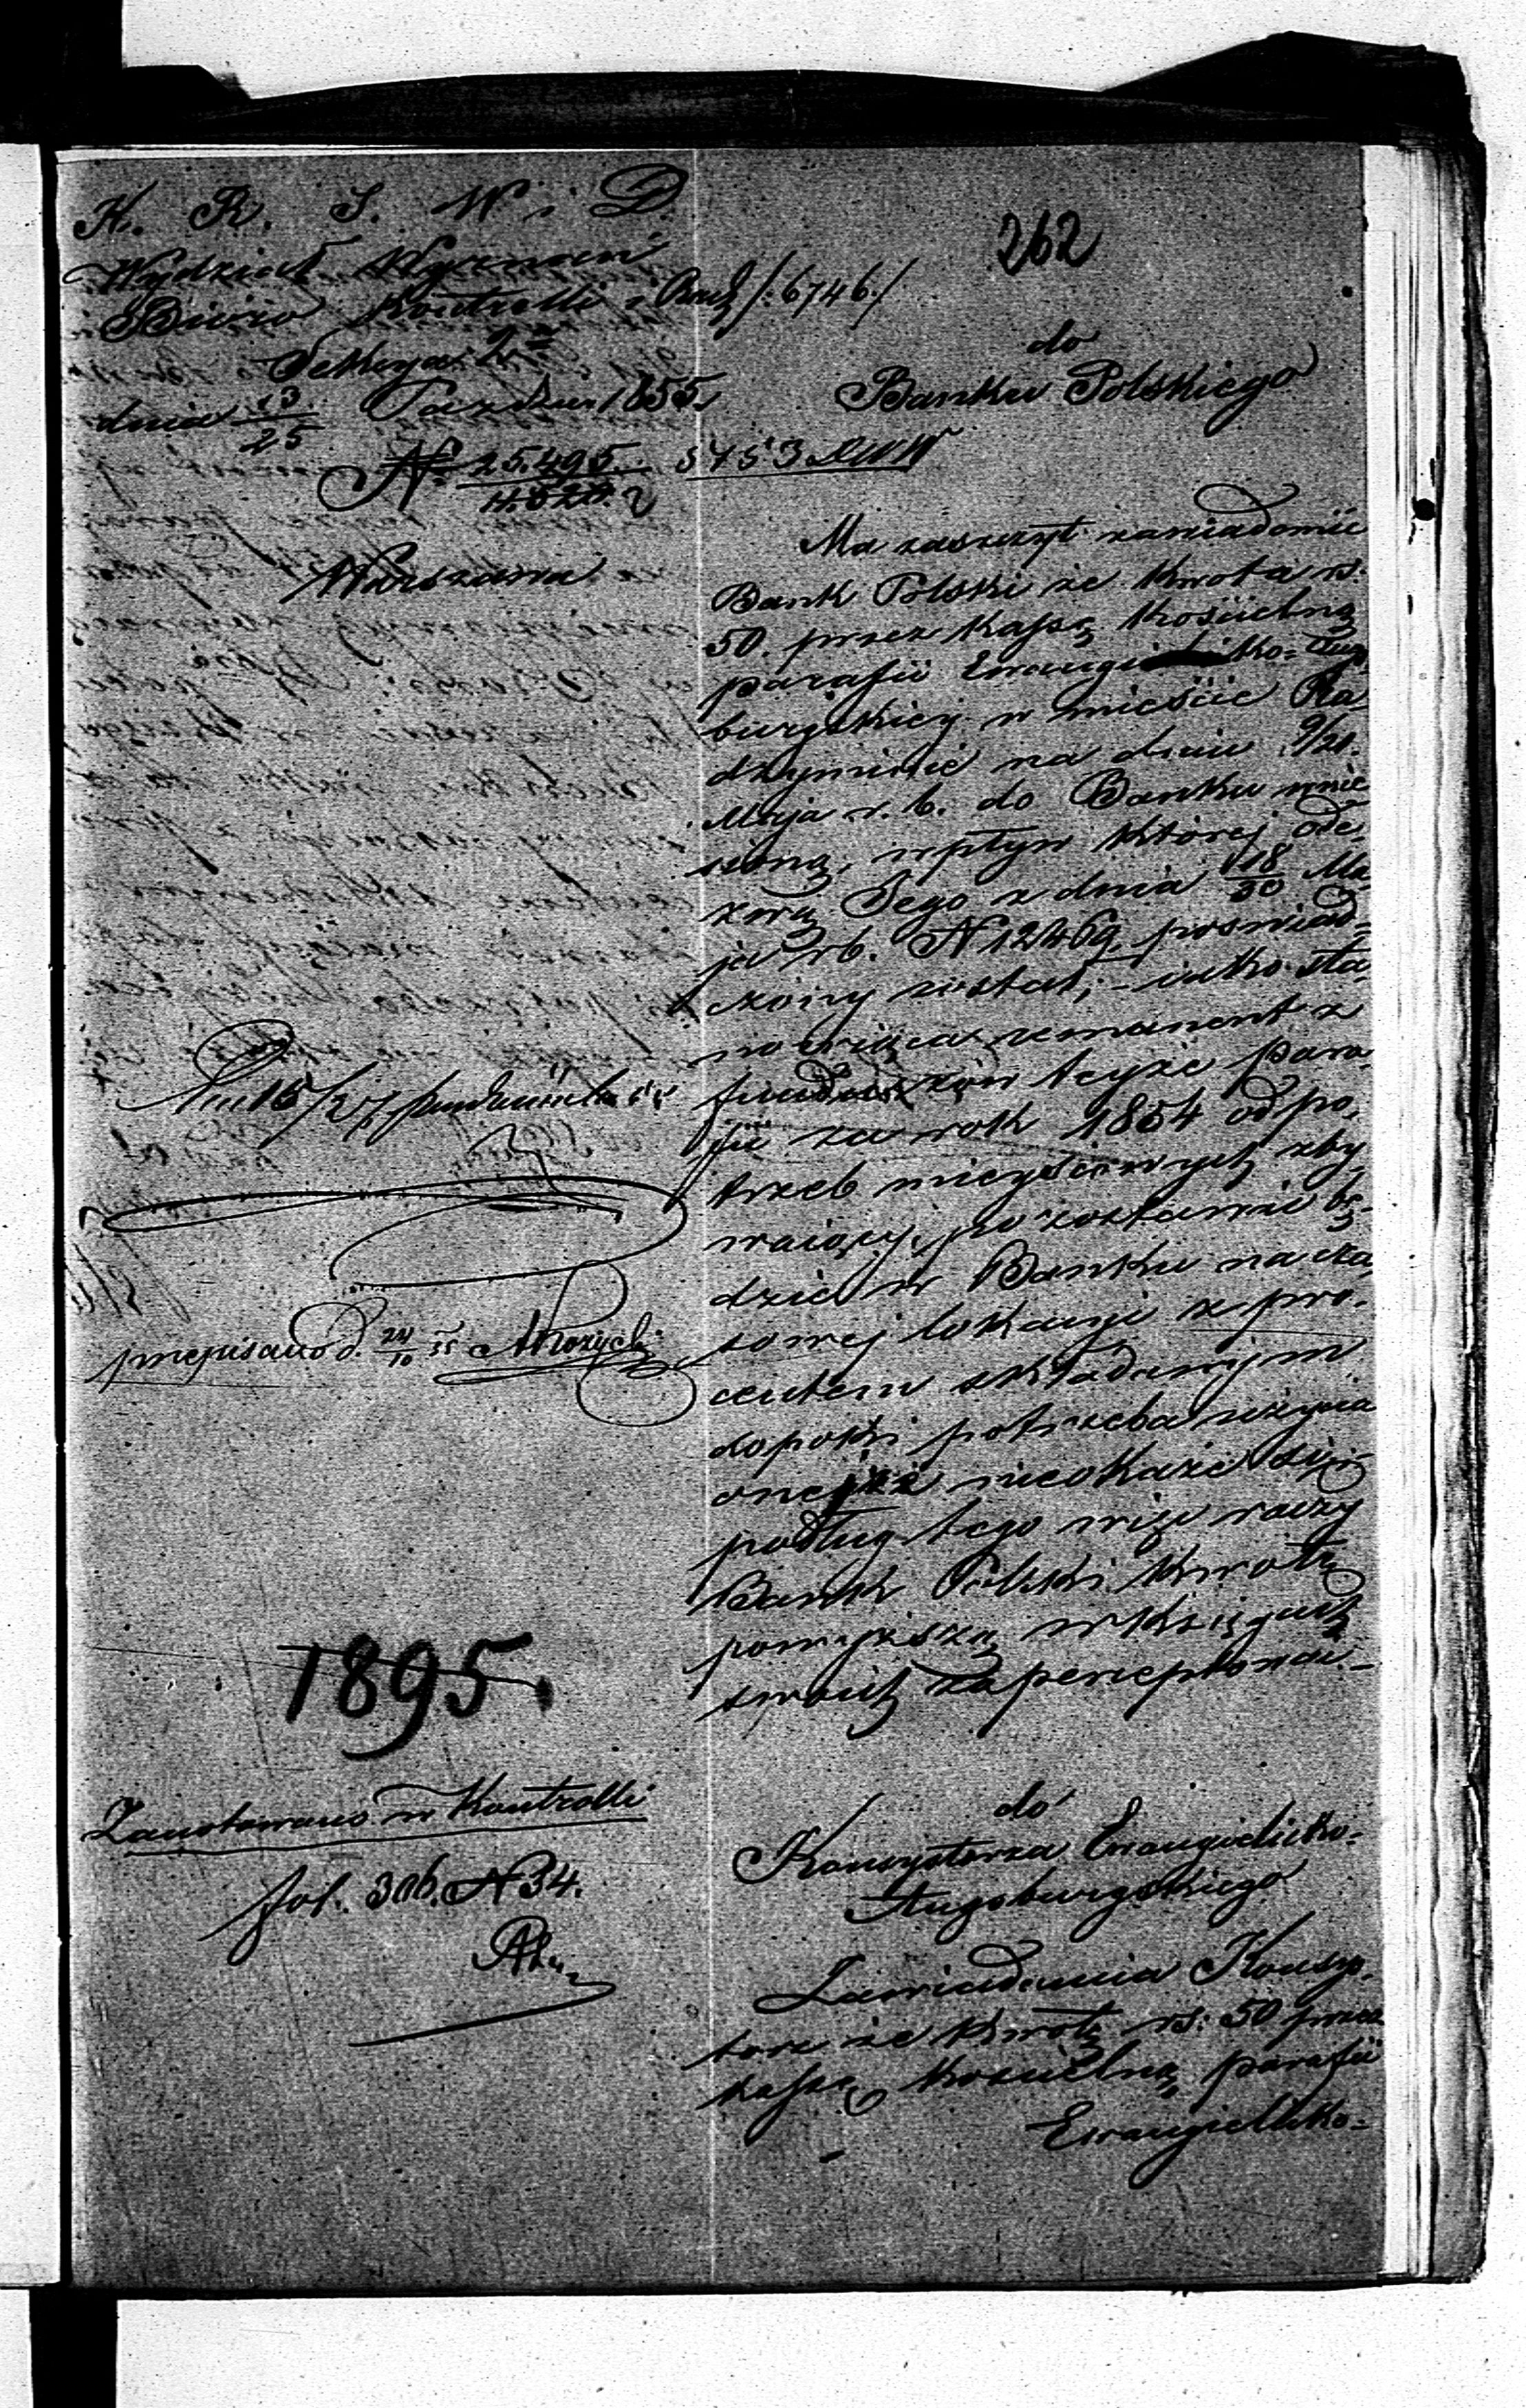 K. R. S. W. i D.
Wydział Wyznań
Biuro Kontrolli i Rach /:6746:/
Sekcya 2ga
dnia 13/25 Paźdzr 1855
No 25.495 / 5453
Warszawa
przepisano d. 24/10 55
1895.
Zanotowano w Kontrolli
fol. 306. N 34.
262
do
Banku Polskiego
Ma zaszczyt zawiadomić
Bank Polski że kwota rs.
50. przez kassę kościelną
parafii Ewangielicko=Aug
burgskiej w mieście Ra
dzyminie na dniu 9/21.
Maja r. b. do Banku wnie
sioną, wpływ której ode
zwą Jego z dnia 18/30 Ma
ja rb. N 12469 poświad=
czony został; - iako sta
nowiąca remanent z
funduszów tejże para
fii za rok 1854 od po
trzeb miejscowych zby
waiący, pozostawić bę-
dzie w Banku na cza
sowej lokacyi z pro.
centem składanym
dopoki potrzeba użycia
onejże nieokaże się;
podług tego więc raczy
Bank Polski kwotę
powyższą w księgach
swoich zapercepować
do
Konsystorza Ewangielicko=
Augsburgskiego
Zawiadamia Konsys
torz że kwotę rs: 50 przez
kassę kościelną parafii
Ewangielicko=